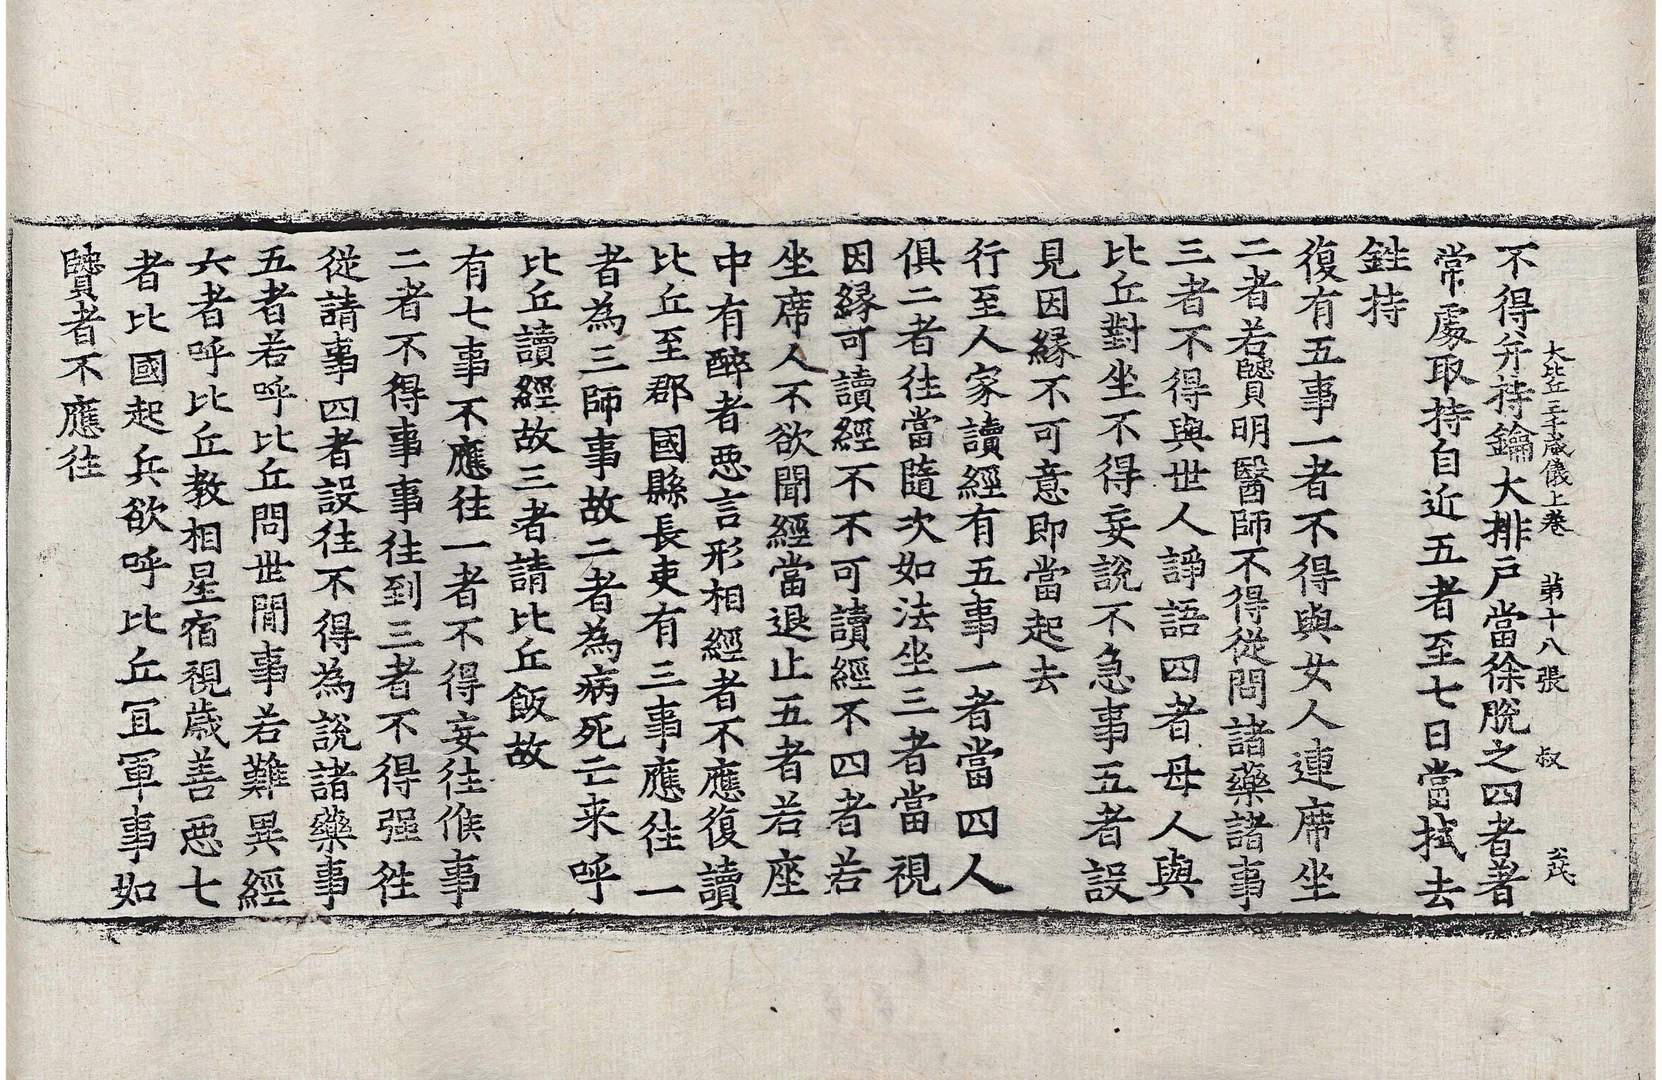 大比丘三千威儀上卷 第十八張 叔 公茂
不得弁持鑰大排戶當徐脫之四者著
常處取持自近五者至七日當拭去
鉎持
復有五事一者不得與女人連席坐
二者若鼸明醫師不得從問諸藥諸事
三者不得與世人諍語四者母人與
比丘對坐不得妄說不急事五者設
見因緣不可意即當起去
行至人家讀經有五事一者當四人
俱二者往當隨次如法坐三者當視
因緣可讀經不不可讀經不四者若
坐席人不欲聞經當退止五者若座
中有醉者惡言形相經者不應復讀
比丘至郡國縣長吏有三事應往一
者為三師事故二者為病死亡来呼
比丘讀經故三者請比丘飯故
有七事不應往一者不得妄往候事
二者不得事事往到三者不得强往
從請事四者設往不得為說諸藥事
五者若呼比丘問世間事若難異經
六者呼比丘教相星宿視歲善惡七
者比國起兵欲呼比丘冝軍事如
者不應往